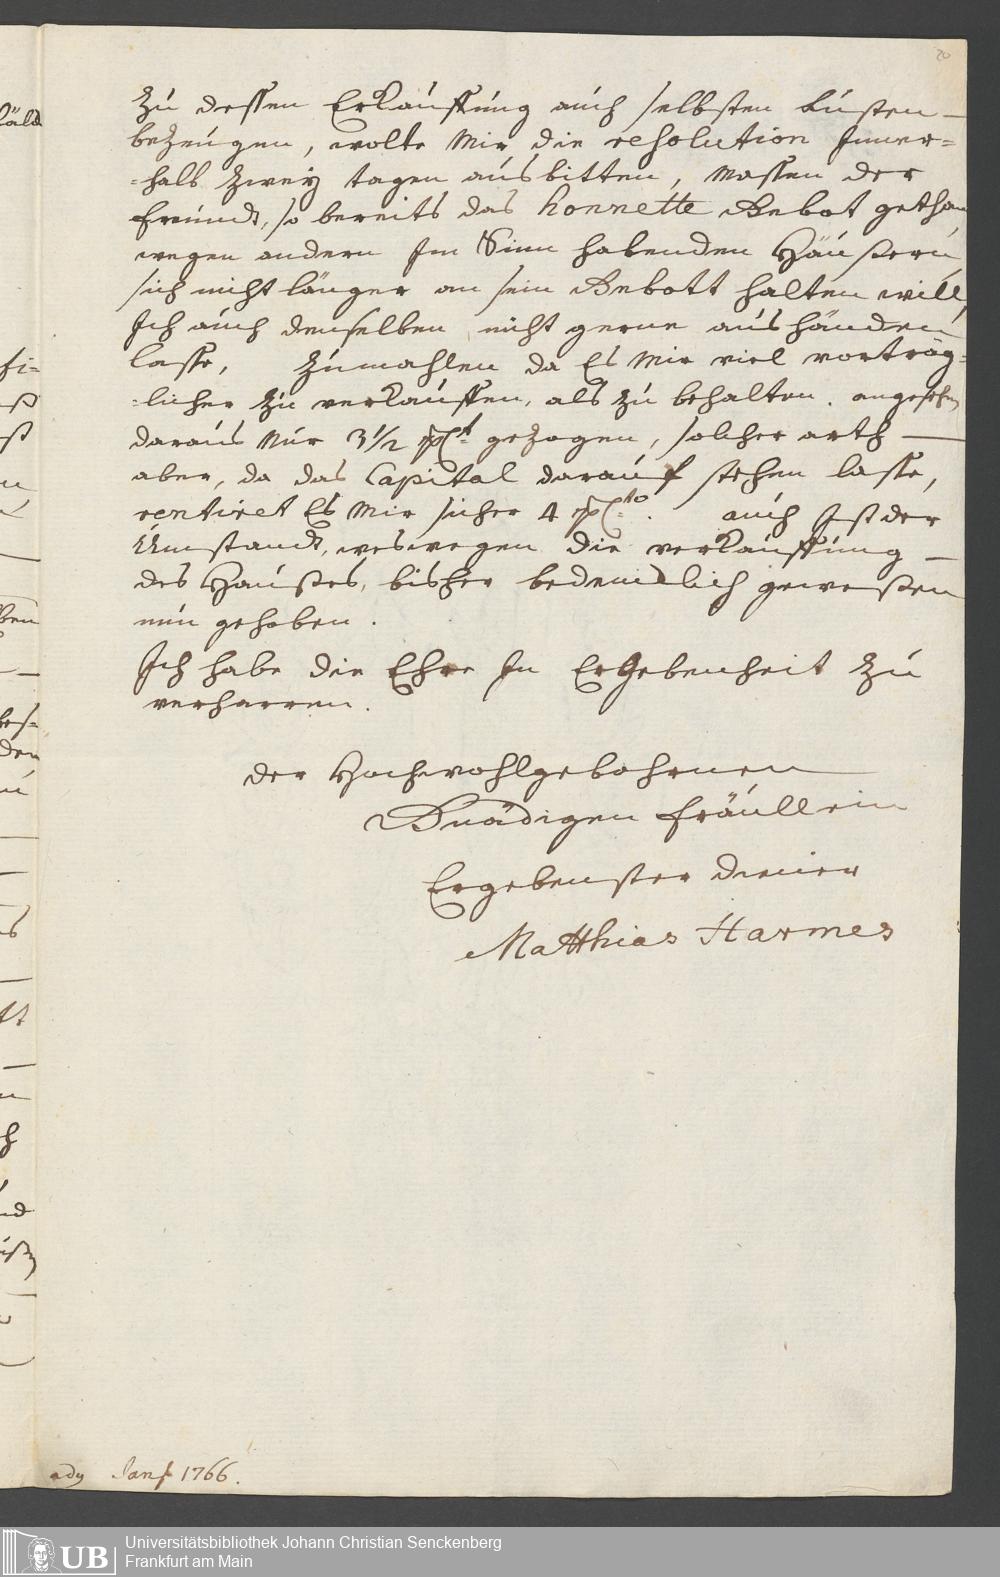 20
zu dessen Erkauffung auch selbsten Lusten
bezeugen, wolte Mir die resolution Inner=
=halb zwey tagen ausbitten, Massen der
freundt, so bereits das honnette Anbot gethan
wegen andern Im Sinn habenden Häußern,
sich nicht länger an sein Anbott halten will,
Ich auch denselben nicht gerne aus händen
lasse, zumahlen da Es Mir viel vorträg=
=licher zu verkauffen, als zu behalten. angesehen
daraus Nur 3 1/2 pCt gezogen, solcher arth
aber, da das Capital darauf stehen lasse,
rentiret Es Mir sicher 4 pCto. auch Ist der
Umstandt, weswegen die verkauffung
des Haußes, bisher bedencklich geweßen
nun gehoben.
Ich habe die Ehre In Ergebenheit zu
verharren.
der Hochwohlgebohrnen
Gnädigen fräullein
Ergebenster diener
Matthias Harmes
ady Jan 1766.
Universitätsbibliothek Johann Christian Senckenberg
Frankfurt am Main
UB